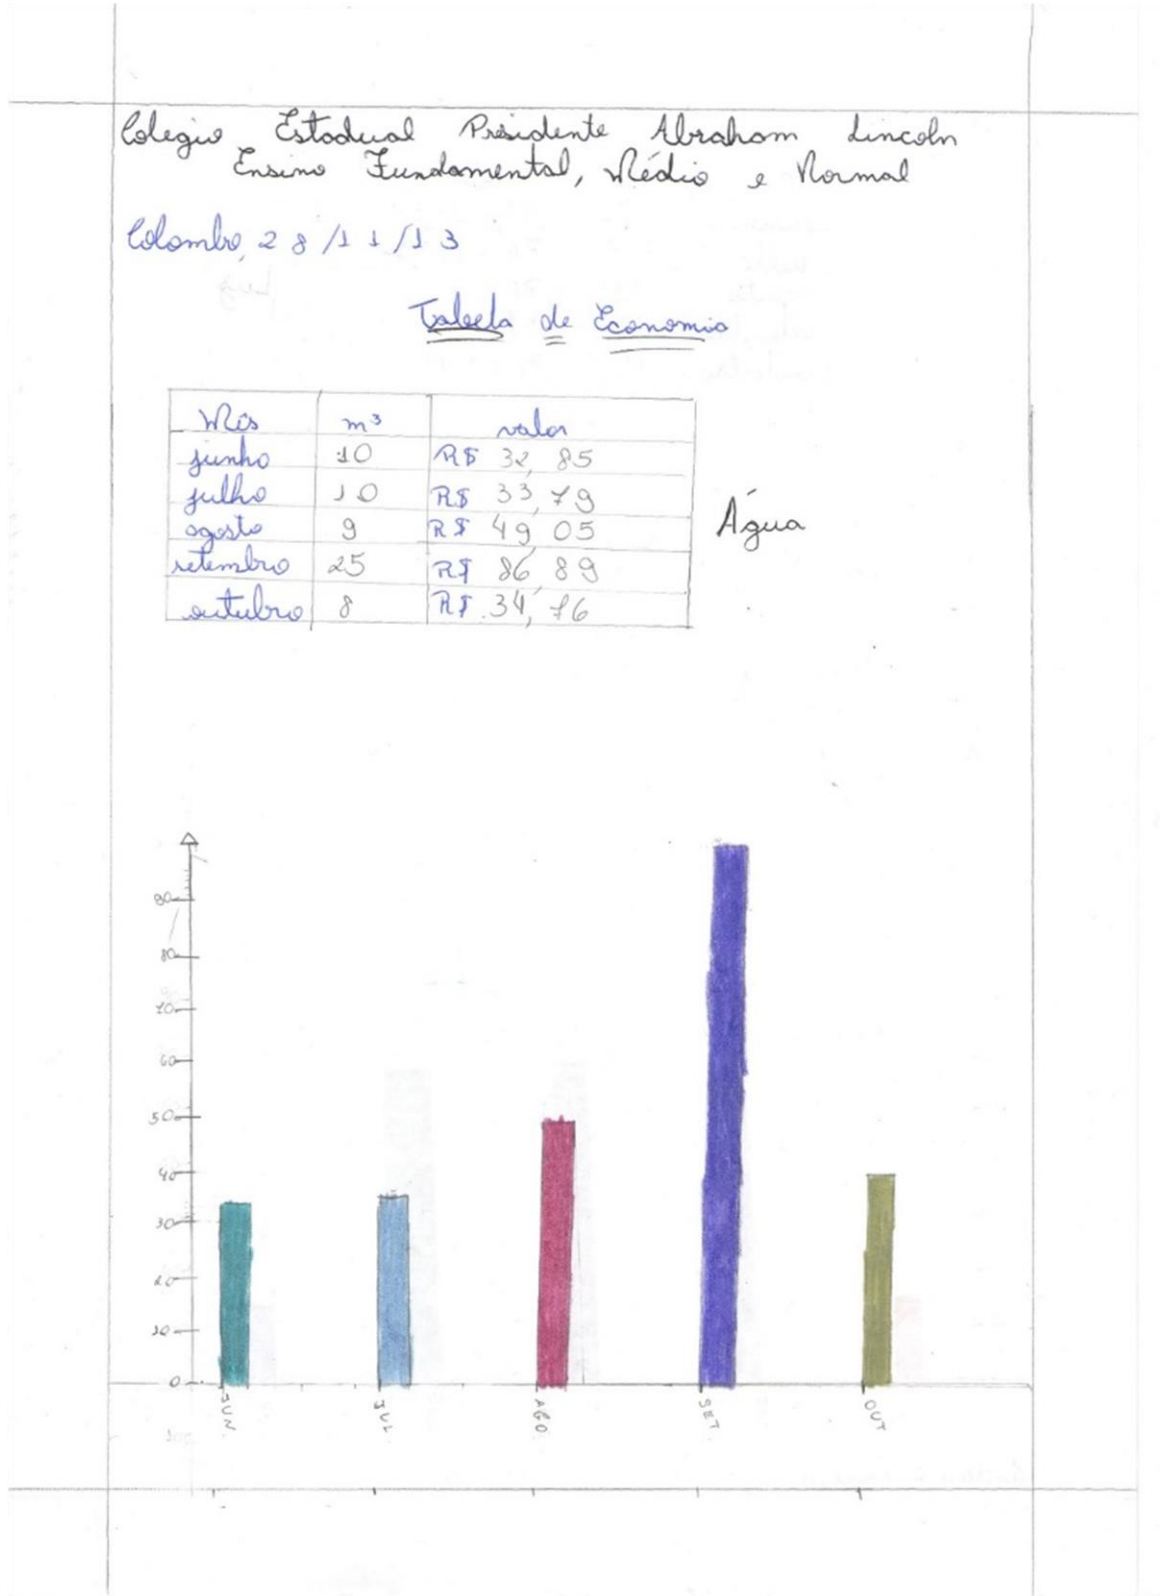 Colegio Estadual Presidente Abraham Lincoln
Ensino Fundamental, Médio e Normal
Colombo, 28/11/13
Tabela de Economia
Mês m³ valor
junho 10 R$ 32,85
julho 10 R$ 33,79
agosto 9 R$ 49,05
setembro 25 R$ 86,89
outubro 8 R$ 34,76
Água
90
80
70
60
50
40
30
20
10
0
JUN JUL AGO SET OUT